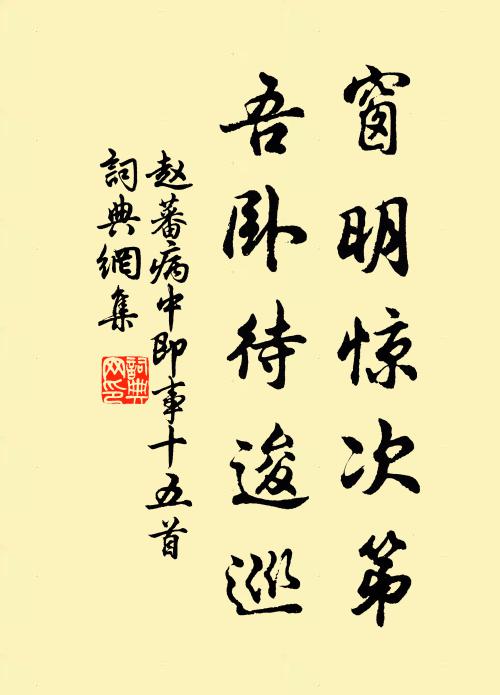 窗明惊次第
吾卧待逡巡
赵蕃病中即事十五首
词典網集
詞典網印